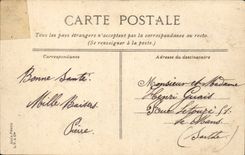 CARTE POSTALE
Tous les pays étrangers n'acceptent pas la correspondance au recto.
(Se renseigner à la poste.)
Correspondance
Adresse du destinataire
Bonne Santé
Mille Baisers
Pierre
Monsieur et Madame
Henri
Rue
le Mans
(Sarthe)